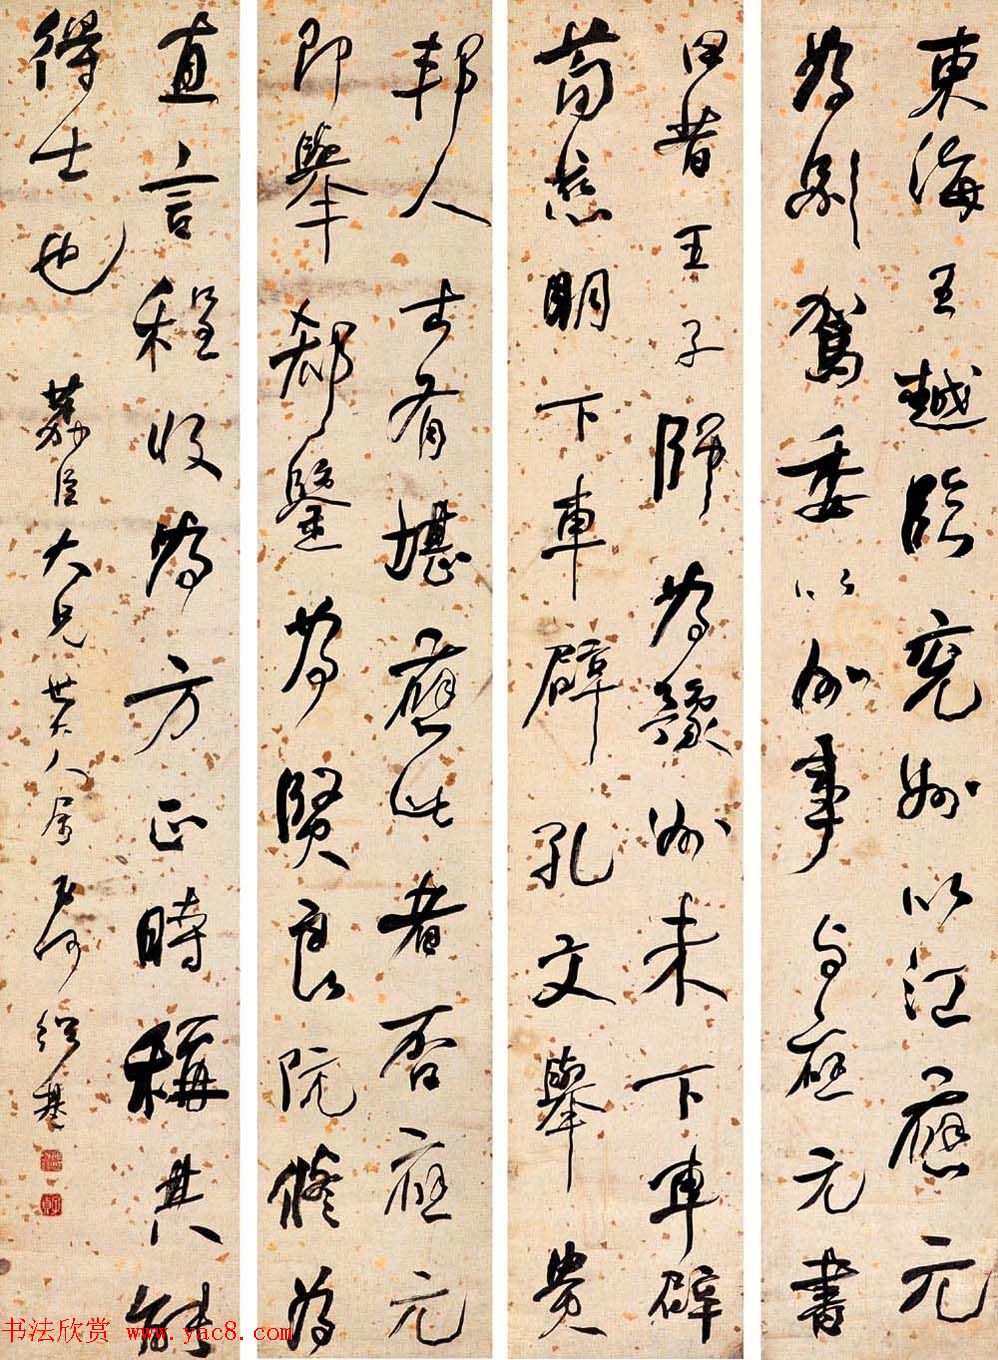 東海王越臨兖州以江應元
為别駕委以州事与應元書
曰昔王子師為豫州未下車辟
荀慈明下車辟孔文舉貴
邦人士有堪應此者否應元
即舉郗鑒為賢良阮修為
直言程收為方正時稱其能
得士也
大兄世大人属 何紹基
书法欣赏 www.yac8.com